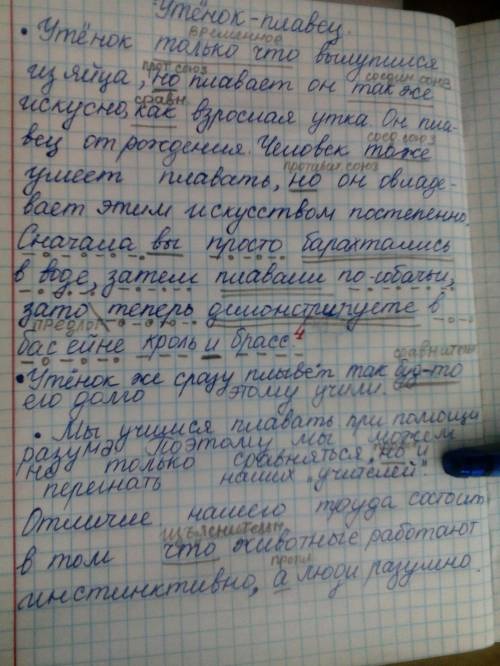 Утёнок-плавец.
временное
• Утёнок только что вылупился
прот союз соедин союз
из яйца, но плавает он также
сравн.
искусно, как взрослая утка. Он пла-
соед союз
вец от рождения. Человек тоже
противит союз
умеет плавать, но он овладе-
вает этим искусством постепенно.
Сначала вы просто барахтались
в воде, затем плавали по-собачьи,
зато теперь демонстрируете в
предлог
бассейне кроль и брасс 4
сравнительн
• Утёнок же сразу плывёт так будто
его долго этому учили
• Мы учимся плавать при помощи
разума Поэтому мы можем
не только сравняться, но и
перегнать наших "учителей".
Отличие нашего труда состоит
изъяснительн
в том что животные работают
против
инстинктивно, а люди разумно.